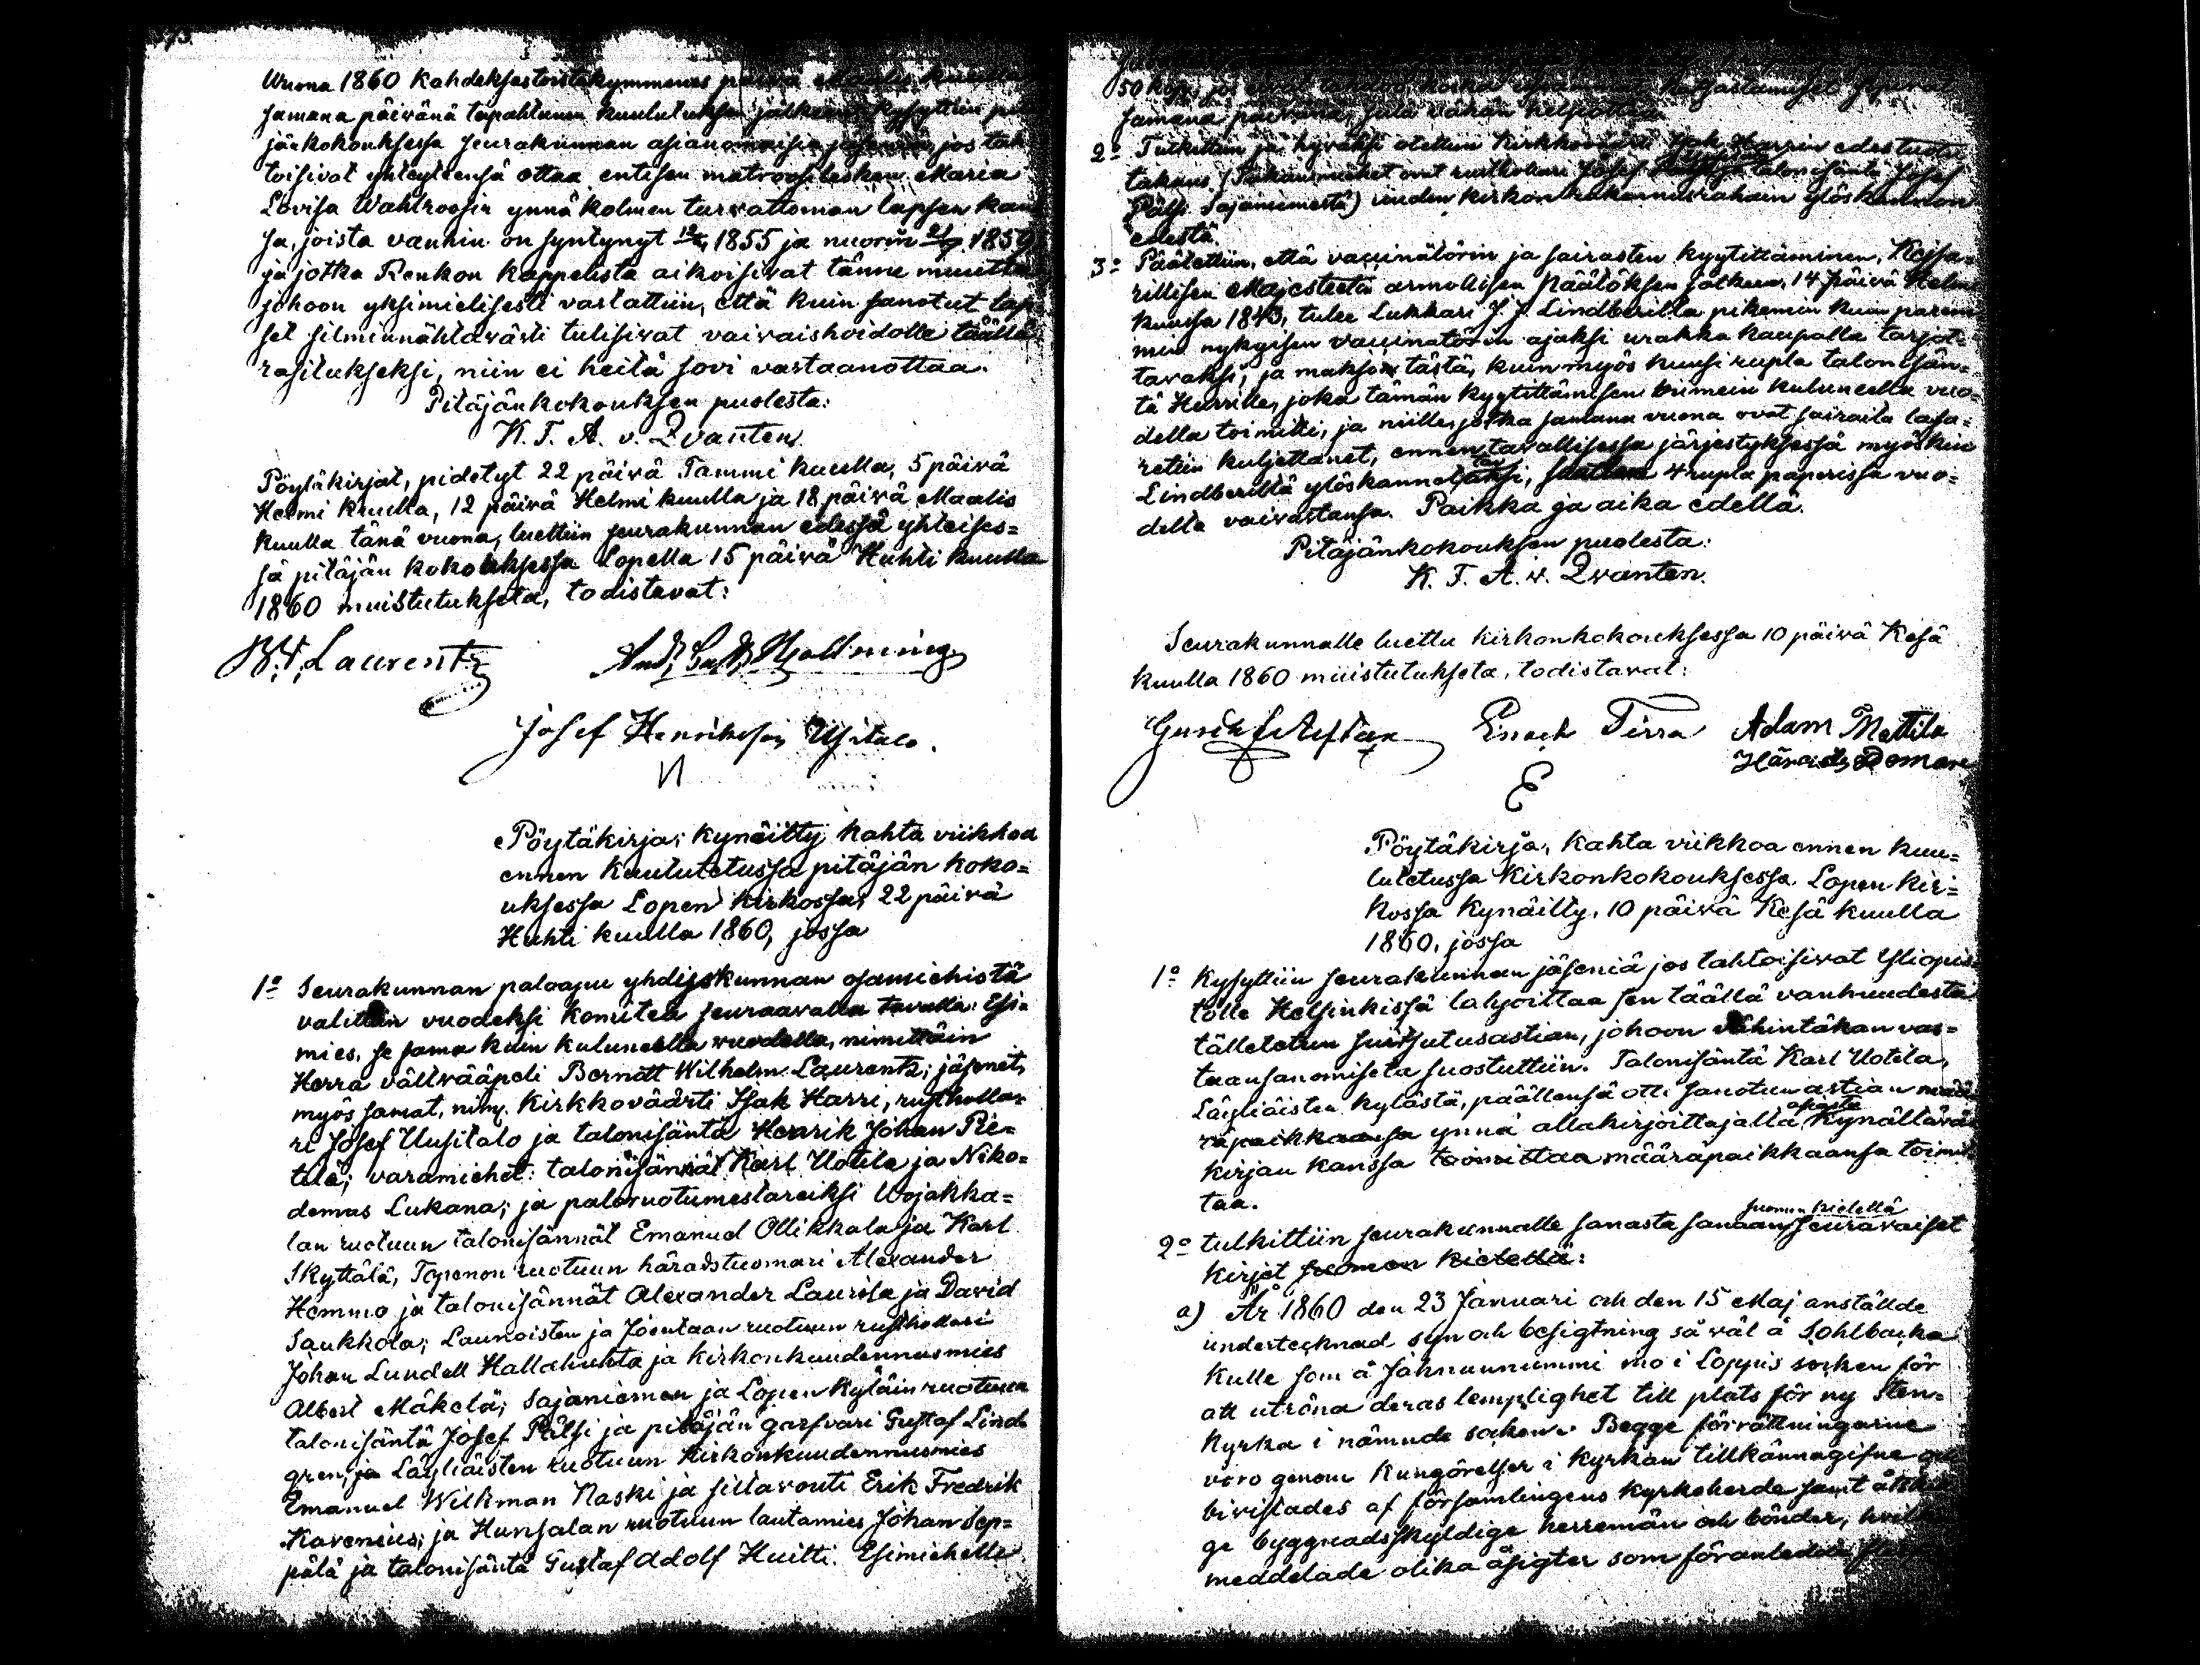 Wuona 1860 Kahdeksastoistakymmenes päivä Maalis kuulla
samana päivänä tapahtunen kuulutuksen jälkeen kysyttiin pitä
jänkokouksessa seurakunnan asianomaisia jäseniä, jos tah
toisivat yhteyteensä ottaa entisen matroosilesken Maria
Lovisa Wahlroosin ynnä kolmen turvattoman lapsen kans
sa, joista vanhin on syntynyt 1855 ja nuorin 1859
ja jotka Renkon kappelista aikoisivat tänne muuttaa
johoon yksimielisesti vastattiin, että kuin sanotut lap
set silminnähtävästi tulisivat vaivaishoidolle täällä
rasitukseksi, niin ei heitä sovi vastaanottaa.
Pitäjänkokouksen puolesta:
K. F. A. v. Qvanten.
Pöytäkirjat, pidetyt 22 päivä Tammi kuulla, 5 päivä
Helmi kuulla, 12 päivä Helmi kuulla ja 18 päivä Maalis
kuulla tänä vuona, luettiin seurakunnan edessä yhteises=
sä pitäjän kokouksessa Lopella 15 päivä Huhti kuulla
1860 muistutukseta, todistavat:
B. W. Laurentz And. Gust. Hallming
Josef Henriksson Usitalo.
Pöytäkirja, kynäilty kahta viikkoa
ennen kuulutetussa pitäjän koko=
uksessa Lopen kirkossa, 22 päivä
Huhti kuulla 1860, jossa
1o Seurakunnan paloapu yhdyskunnan osamiehistä
valittiin vuodeksi komitea seuraavalla tavalla: Esi=
mies, se sama kuin kuluneella vuodella, nimittäin
Herra vällvääpeli Berndt Wilhelm Laurentz; jäsenet,
myös samat, nimj. Kirkkoväärti Isak Harri, rustholla=
ri Josef Uusitalo ja talonisäntä Henrik Johan Pie=
tilä; varamiehet: talonisännät Karl Uotila ja Niko=
demus Lukana; ja paloruotumestareiksi Wojakka=
lan ruotuun talonisännät Emanuel Ollikkala ja Karl
Skyttälä, Topenon ruotuun häradstuomari Alexander
Hemmo ja talonisännät Alexander Laurila ja David
Saukkola; Launoisten ja Joentaan ruotuun rusthollari
Johan Lundell Hallahuhta ja kirkonkuudennusmies
Albert Mäkelä; Sajaniemen ja Lopen kyläin ruotuun
talonisäntä Josef Pälsi ja pitäjän garfvari Gustaf Lind
gren; ja Läyliäisten ruotuun Kirkonkuudennusmies
Emanuel Wilkman Naski ja sillavouti Erik Fredrik
Kavenius; ja Hunsalan ruotuun lautamies Johan Sep=
pälä ja talonisäntä Gustaf Adolf Huitti. Esimiehelle
50 kop.
samana päivänä,
2o Tutkittiin ja hyväksi otettiin Kirkkoväärti Isak Harrin edestuotu
takaus (Takausmiehet ovat rusthollari Josef talonisäntä Josef
Pälsi Sajaniemestä) uuden kirkon rakennusrahain ylöskannon
edestä.
3o Päätettiin, että vaccinätörin ja sairasten kyytittäminen, Keisa=
rillisen Majesteetin armollisen Päätöksen jälkeen, 14 päivä Helmi
kuussa 1843, tulee Lukkari J. J. Lindberilla pikemin kuin parem
min nykyisen vaccinatörin ajaksi urakka kaupalla tarjot=
tavaksi, ja maksoa tästä, kuin myös kuusi rupla talonisän=
tä Hurrille, joka tämän kyytittämisen viimein kuluneella vuo=
della toimitti, ja niille, jotka samana vuona ovat sairaita lasa=
retiin kuljettanet, ennen tavallisessa järjestyksessä myöskin
Lindberiltä ylöskannettavaksi, 4 rupla paperissa vuo=
della vaivastansa. Paikka ja aika edellä.
Pitäjänkokouksen puolesta:
K. F. A. v. Qvanten.
Seurakunnalle luettu kirkonkokouksessa 10 päivä Kesä
kuulla 1860 muistutukseta, todistavat:
Enoch Tirra Adam Mattila
E Härads Domare
Pöytäkirja, kahta viikkoa ennen kuu=
lutetussa kirkonkokouksessa Lopen kir=
kossa kynäilty, 10 päivä Kesä kuulla
1860, jossa
1o Kysyttiin seurakunnan jäseniä jos tahtoisivat Yliopis=
tolle Helsinkissä lahjoittaa sen täällä vanhuudesta
tälletetun suitsutusastian, johoon vähintäkän vas=
taansanomiseta suostuttiin. Talonisäntä Karl Uotila,
Läyliäisten kylästä, päällensä otti sanotun astian määrä
räpaikkaansa ynnä allakirjoittajalla asiasta kynällävän
kirjan kanssa toimittaa määräpaikkaansa toimit
taa.
2o tulkittiin seurakunnalle sanasta sanaan suomen kielellä seuravaiset
kirjat suomen kielellä:
a) År 1860 den 23 Januari och den 15 Maj anstälde
undertecknad syn och besigtning så väl å Sohlbacka
Kulle som å Jahnunummi mo i Loppis socken för
att utröna deras lemplighet till plats för ny Sten=
kyrka i nämnde socken. Begge förrättningarne
voro genom kungörelser i kyrkan tillkännagifne och
bivistades af församlingens kyrkoherde samt åtskilli
ge byggnadsskyldige herremän och bönder, hvilka
meddelade olika åsigter som föranledde